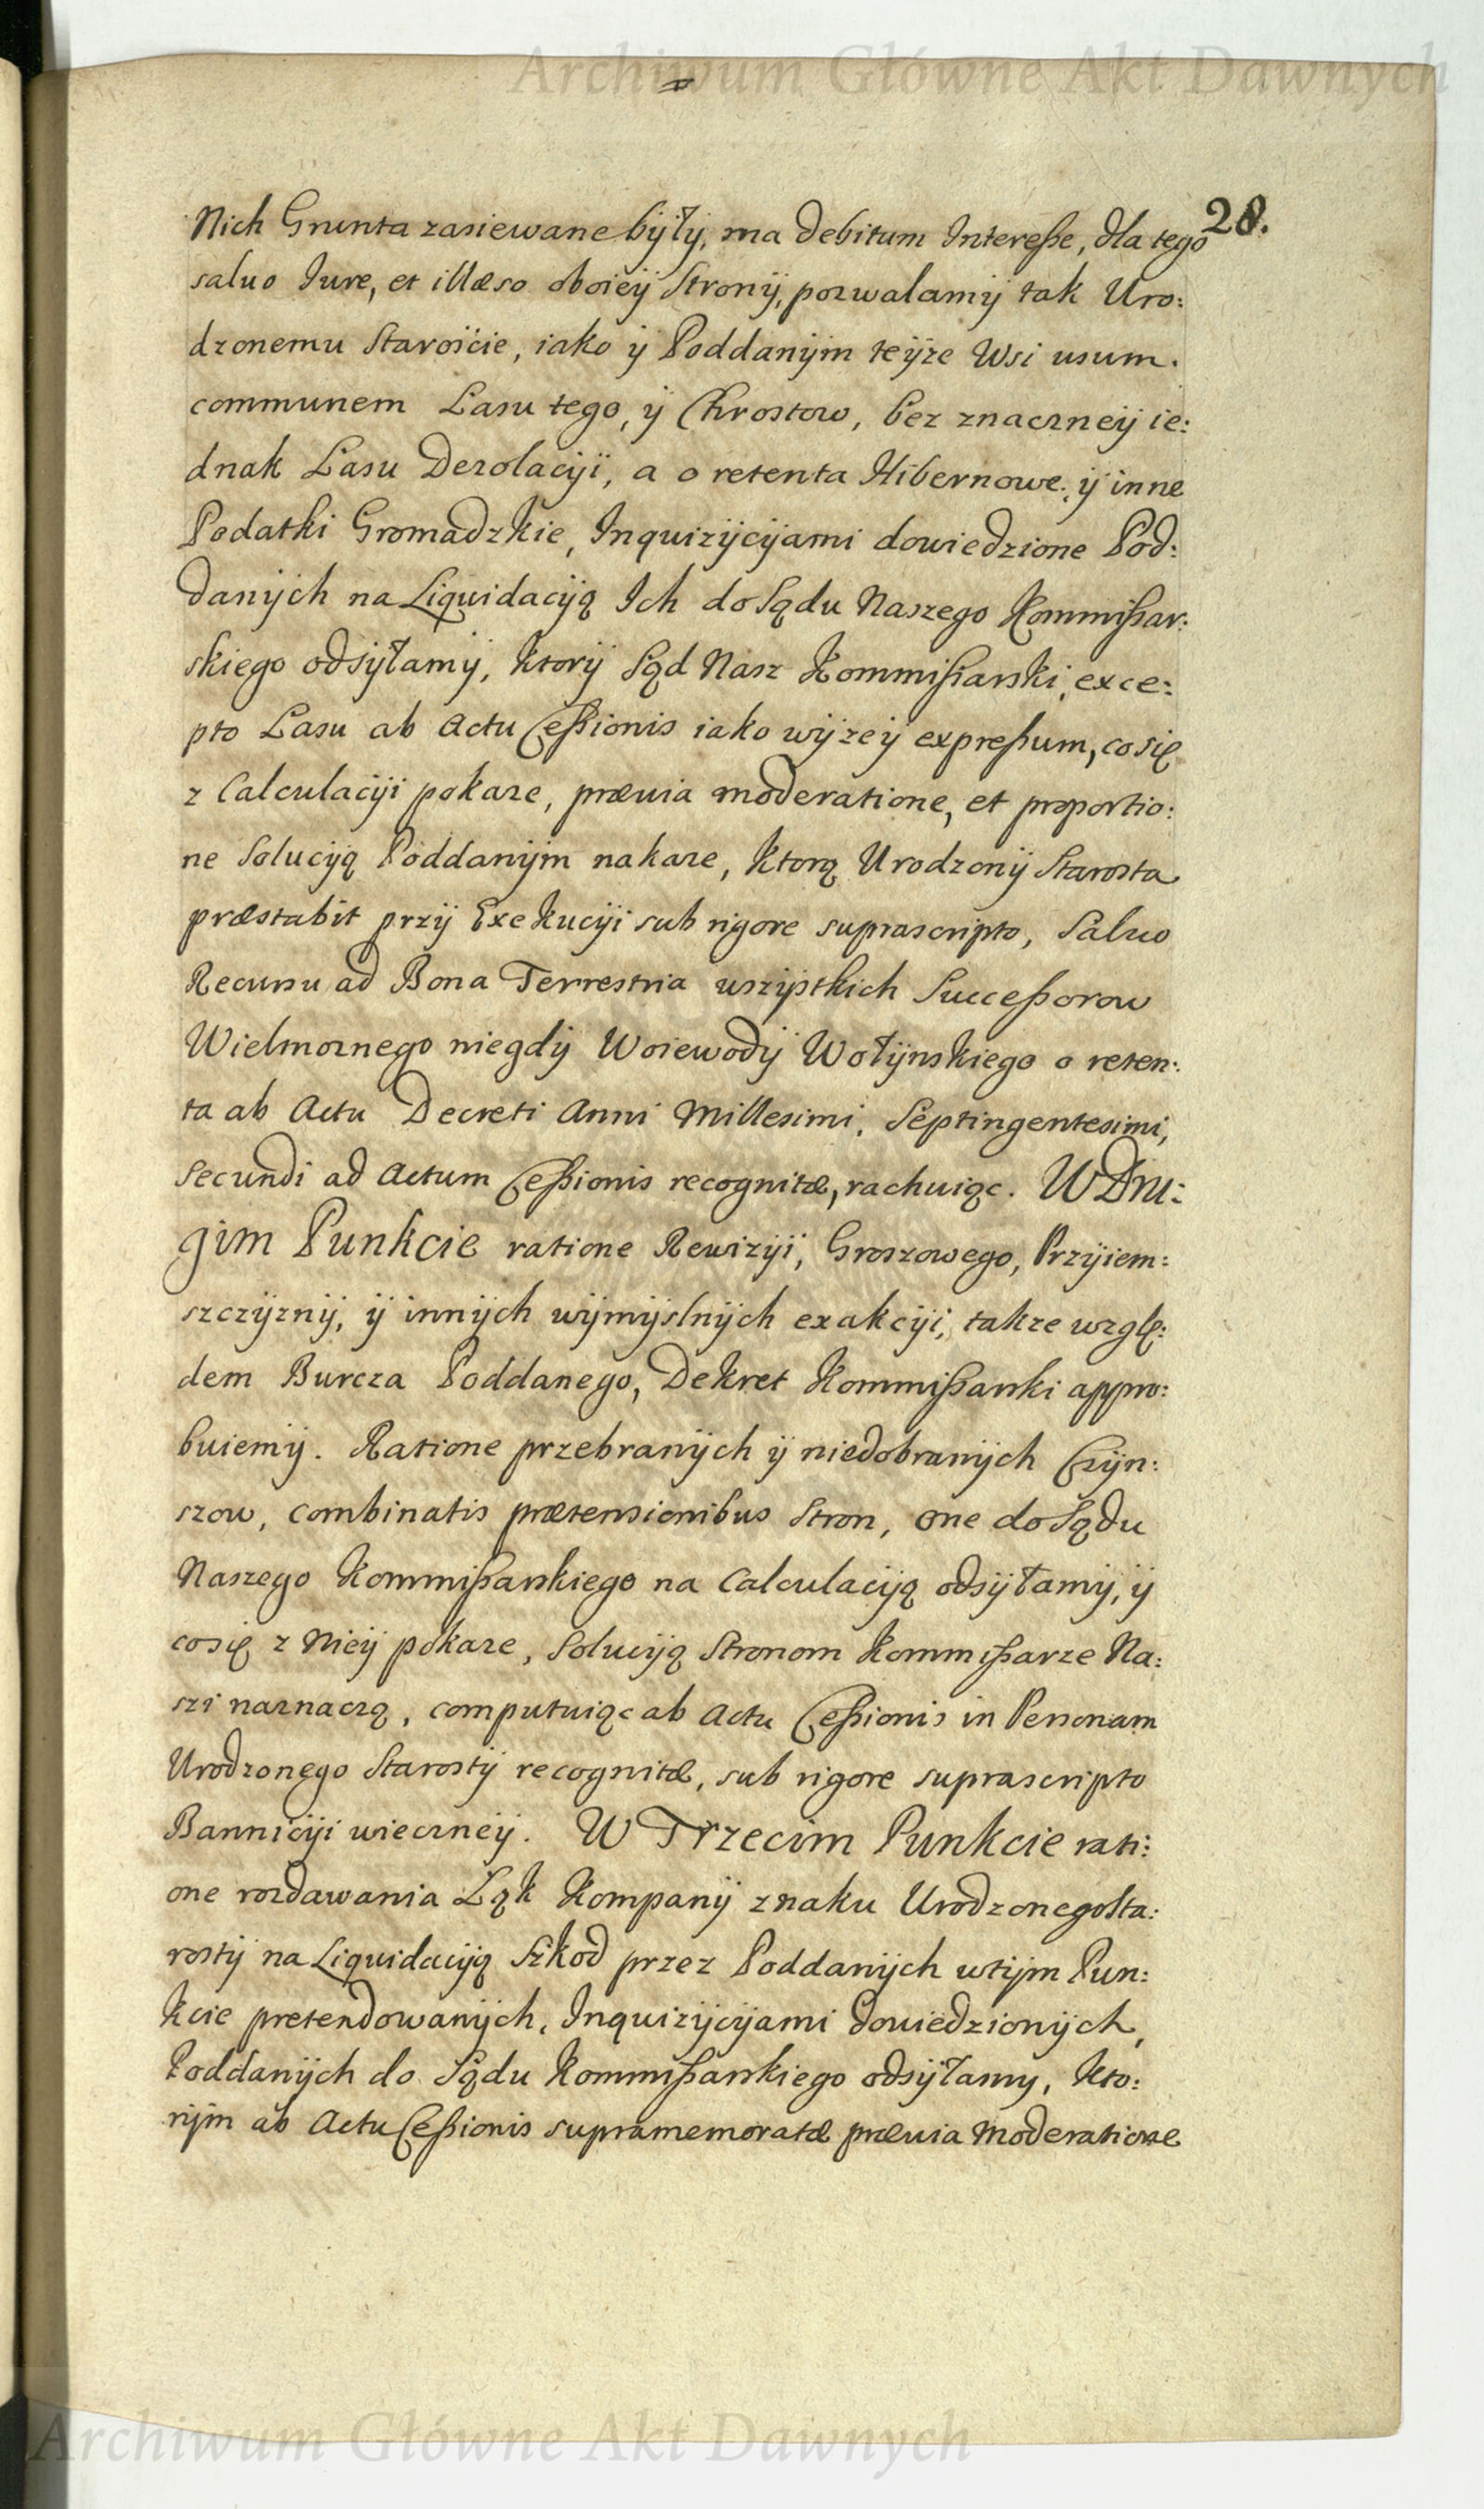 Archiwum Główne Akt Dawnych
28.
Nich Grunta zasiewane były, ma debitum Interesse, dla tego
saluo Iure, et illæso oboiey Strony, pozwalamy tak Uro:
dzonemu Staroście, iako y Poddanym teyże Wsi usum
communem Lasu tego, y Chrostow, bez znaczney ie:
dnak Lasu Dezolacyi, a o retenta Hibernowe, y inne
Podatki Gromadzkie, Inquizycyami dowiedzione Pod:
danych na Liquidacyą Ich do Sądu Naszego Kommissar:
skiego odsyłamy, ktory Sąd Nasz Kommissarski, exce:
pto Lasu ab Actu Cessionis iako wyżey expressum, co się
z Calculacyi pokaże, præuia moderatione, et proportio:
ne Solucyą Poddanym nakaże, ktorą Urodzony Starosta
præstabit przy Exekucyi sub rigore suprascripto, Saluo
Recursu ad Bona Terrestria wszystkich Successorow
Wielmożnego niegdy Woiewody Wołynskiego o reten:
ta ab Actu Decreti Anni Millesimi, Septingentesimi,
Secundi ad Actum Cessionis recognitæ, rachuiąc. W Dru:
gim Punkcie ratione Rewizyi, Groszowego, Przyiem:
szczyzny, y innych wymyslnych exakcyi, także wzglę:
dem Burcza Poddanego, Dekret Kommissarski appro:
buiemy. Ratione przebranych y niedobranych Czyn:
szow, combinatis prætensionibus Stron, one do Sądu
Naszego Kommissarskiego na Calculacyą odsyłamy, y
co się z Niey pokaże, Solucyą Stronom Kommissarze Na:
szi naznaczą, computuiąc ab Actu Cessionis in Personam
Urodzonego Starosty recognitæ, sub rigore suprascripto
Bannicyi wieczney. W Trzecim Punkcie rati:
one rozdawania Łąk Kompany znaku Urodzonego Sta:
rosty na Liquidacyą Szkod przez Poddanych w tym Pun:
kcie pretendowanych, Inquizycyami dowiedzionych,
Poddanych do Sądu Kommissarskiego odsyłamy, kto:
rym ab Actu Cessionis supramemoratæ præuia Moderatione
Archiwum Główne Akt Dawnych